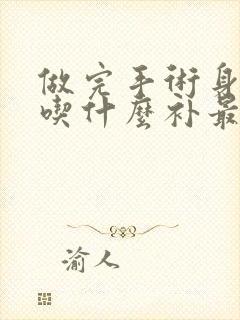 做完手術身
喫什麽补最
渝人